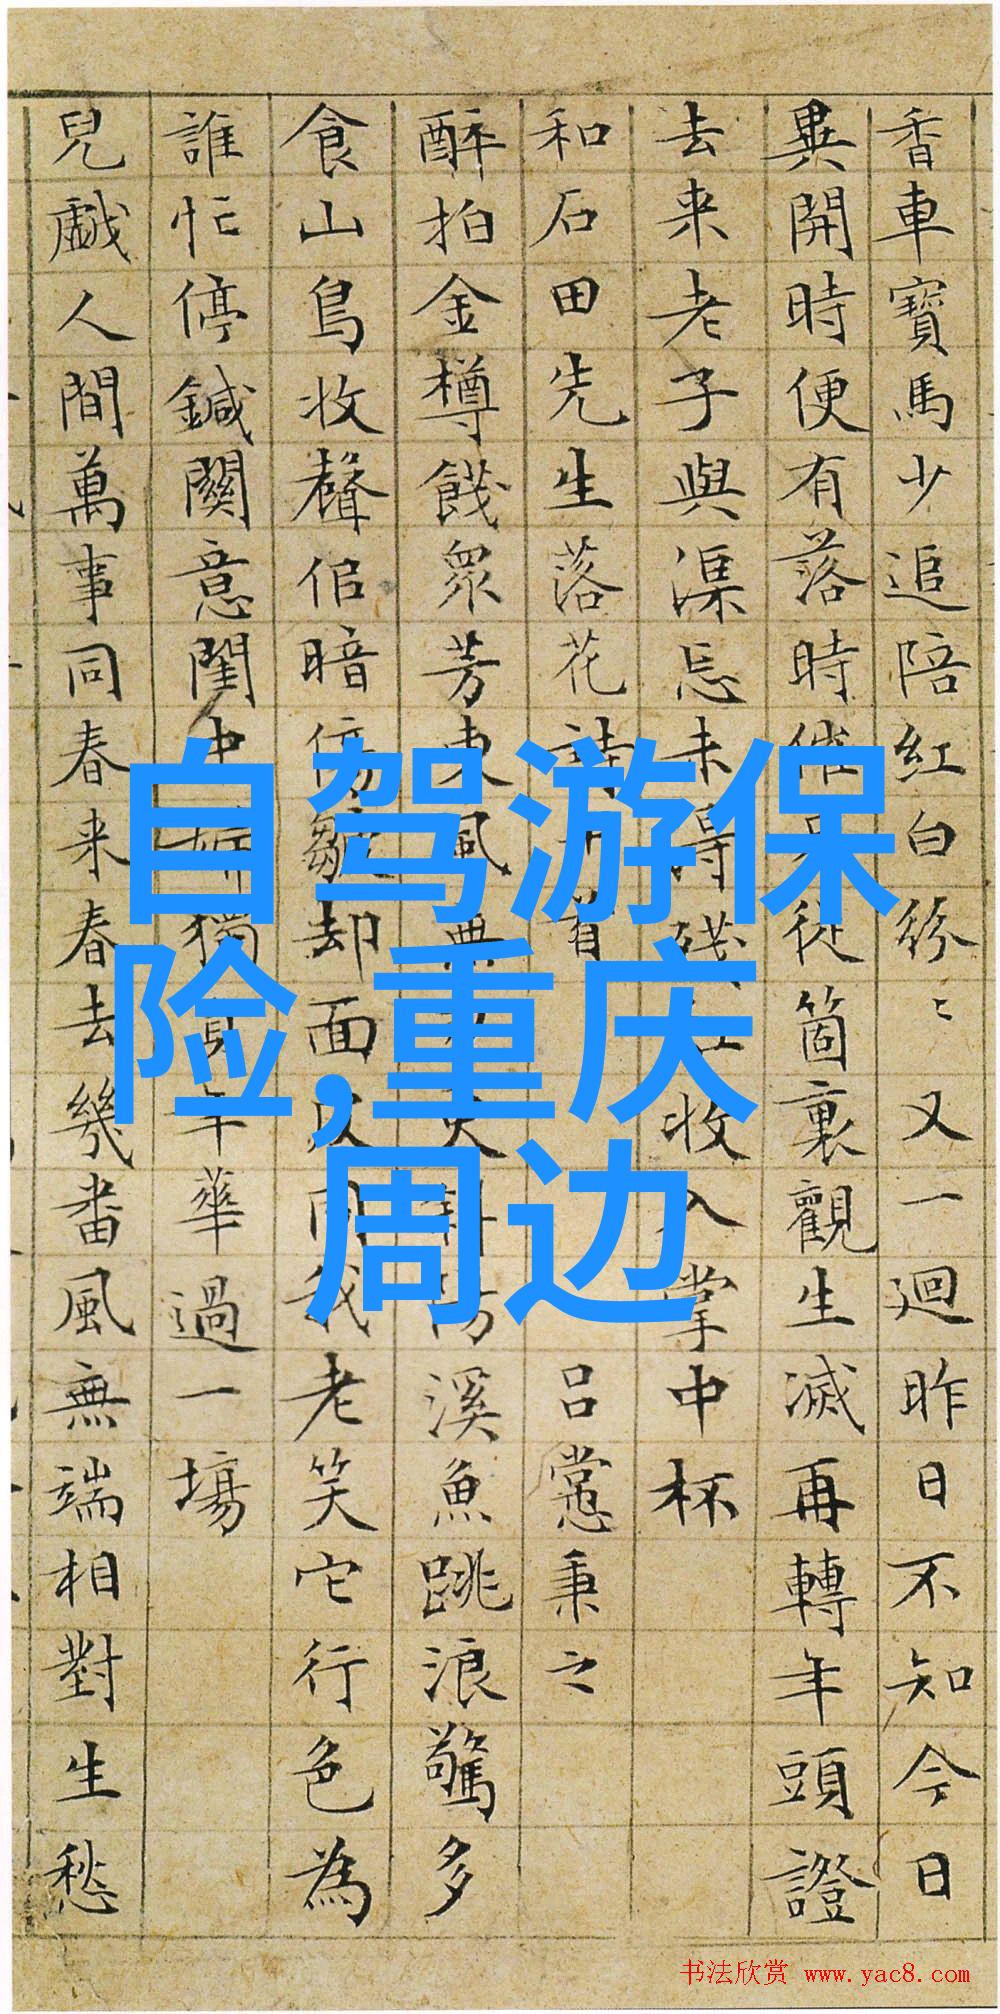 香車寶馬少追陪紅白紛〻又一迴昨日不知今日
異開時便有落時催從箇裏觀生滅再轉年頭證
去来老子與渠忘未得殘收入掌中杯
和石田先生落花詩首 呂㦂秉之
醉拍金樽餞衆芳東風無斜陽溪魚跳浪驚多
食山鳥收聲佀暗傷皺却面皮同我老笑它行色為
誰忙停鍼闗意閨中獨年華過一場
兒戯人間萬事同春来春去幾番風無端相對生愁
自驾游保
险,重庆
周边
书法欣赏 www.yac8.com